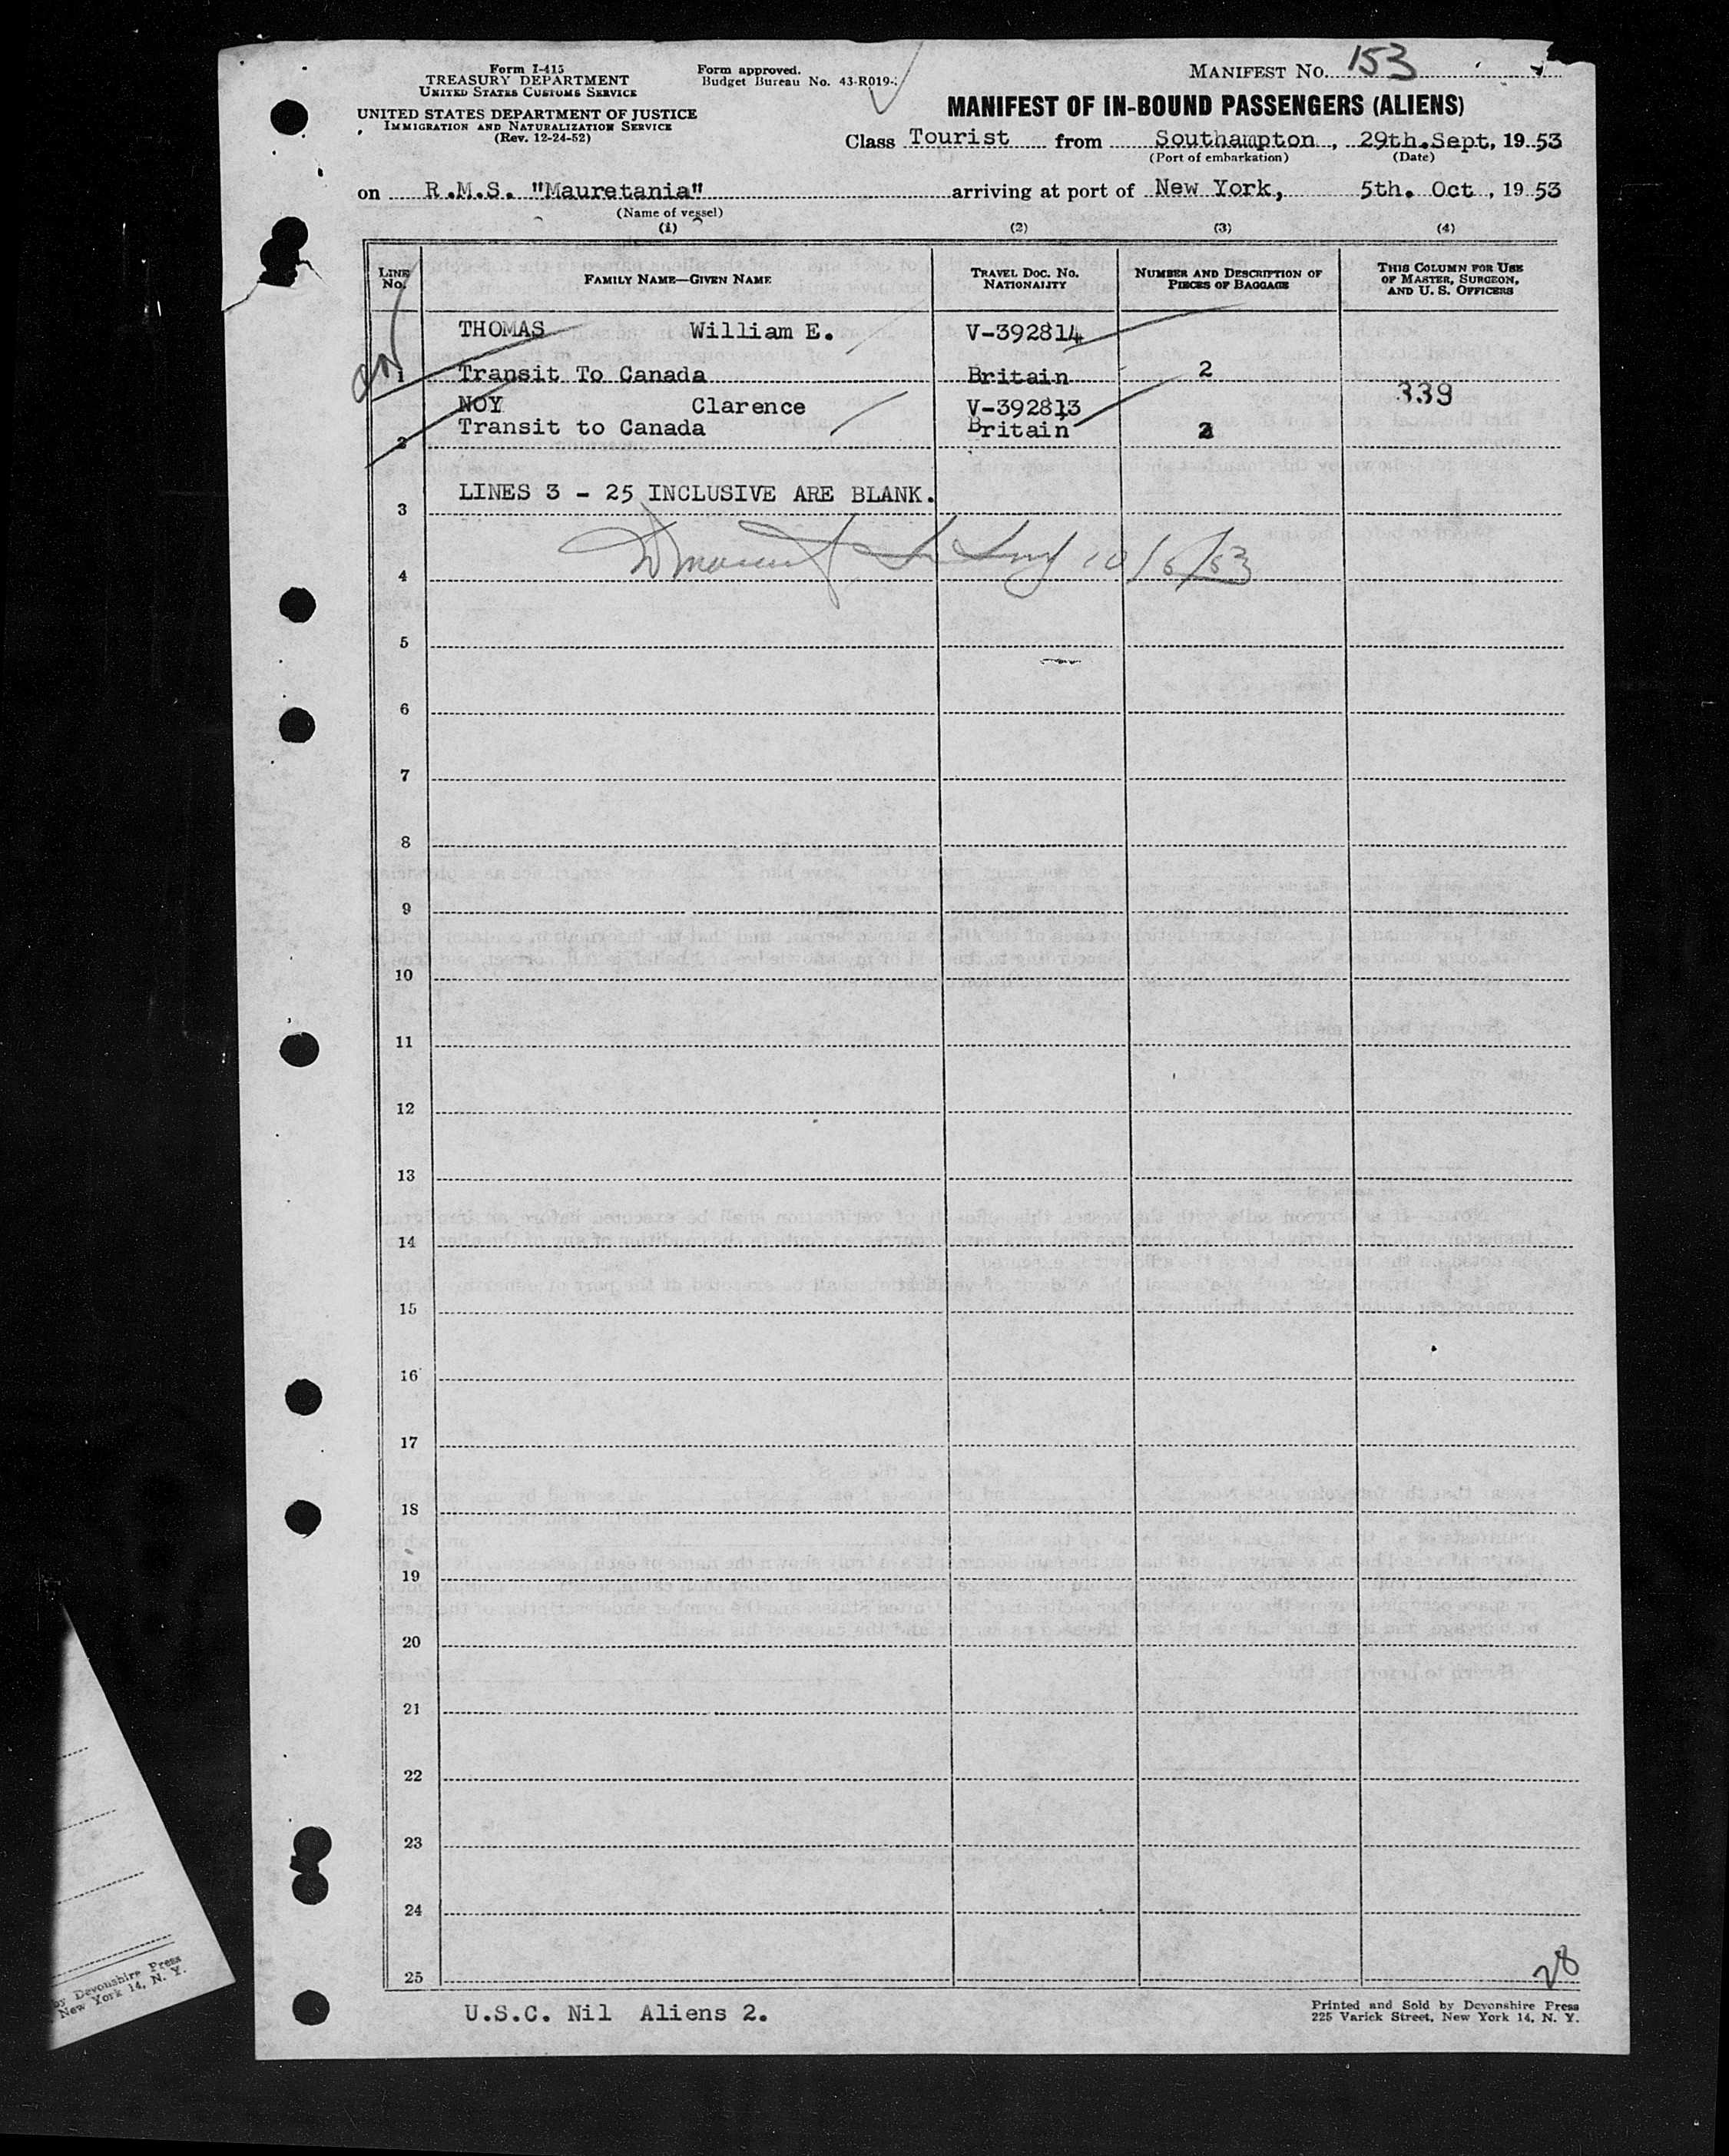 Form I-415
TREASURY DEPARTMENT
UNITED STATES CUSTOMS SERVICE
UNITED STATES DEPARTMENT OF JUSTICE
IMMIGRATION AND NATURALIZATION SERVICE
(Rev. 12-24-52)
Form approved.
Budget Bureau No. 43-R019-
MANIFEST No. 153
MANIFEST OF IN-BOUND PASSENGERS (ALIENS)
Class Tourist from Southampton, 29th.Sept, 19 53
(Port of embarkation) (Date)
on R.M.S. "Mauretania" arriving at port of New York, 5th. Oct, 19 53
(Name of vessel)
(1) (2) (3) (4)
LINE No. FAMILY NAME—GIVEN NAME TRAVEL DOC. NO. NATIONALITY NUMBER AND DESCRIPTION OF PIECES OF BAGGAGE THIS COLUMN FOR USE OF MASTER, SURGEON, AND U. S. OFFICERS
THOMAS William E. V-392814
1 Transit To Canada Britain 2
339
NOY Clarence V-392813
2 Transit to Canada Britain
LINES 3 - 25 INCLUSIVE ARE BLANK.
3
10/5/53
4
5
6
7
8
9
10
11
12
13
14
15
16
17
18
19
20
21
22
23
24
25
28
U.S.C. Nil Aliens 2.
Printed and Sold by Devonshire Press
225 Varick Street, New York 14, N. Y.
by Devonshire Press
New York 14, N. Y.